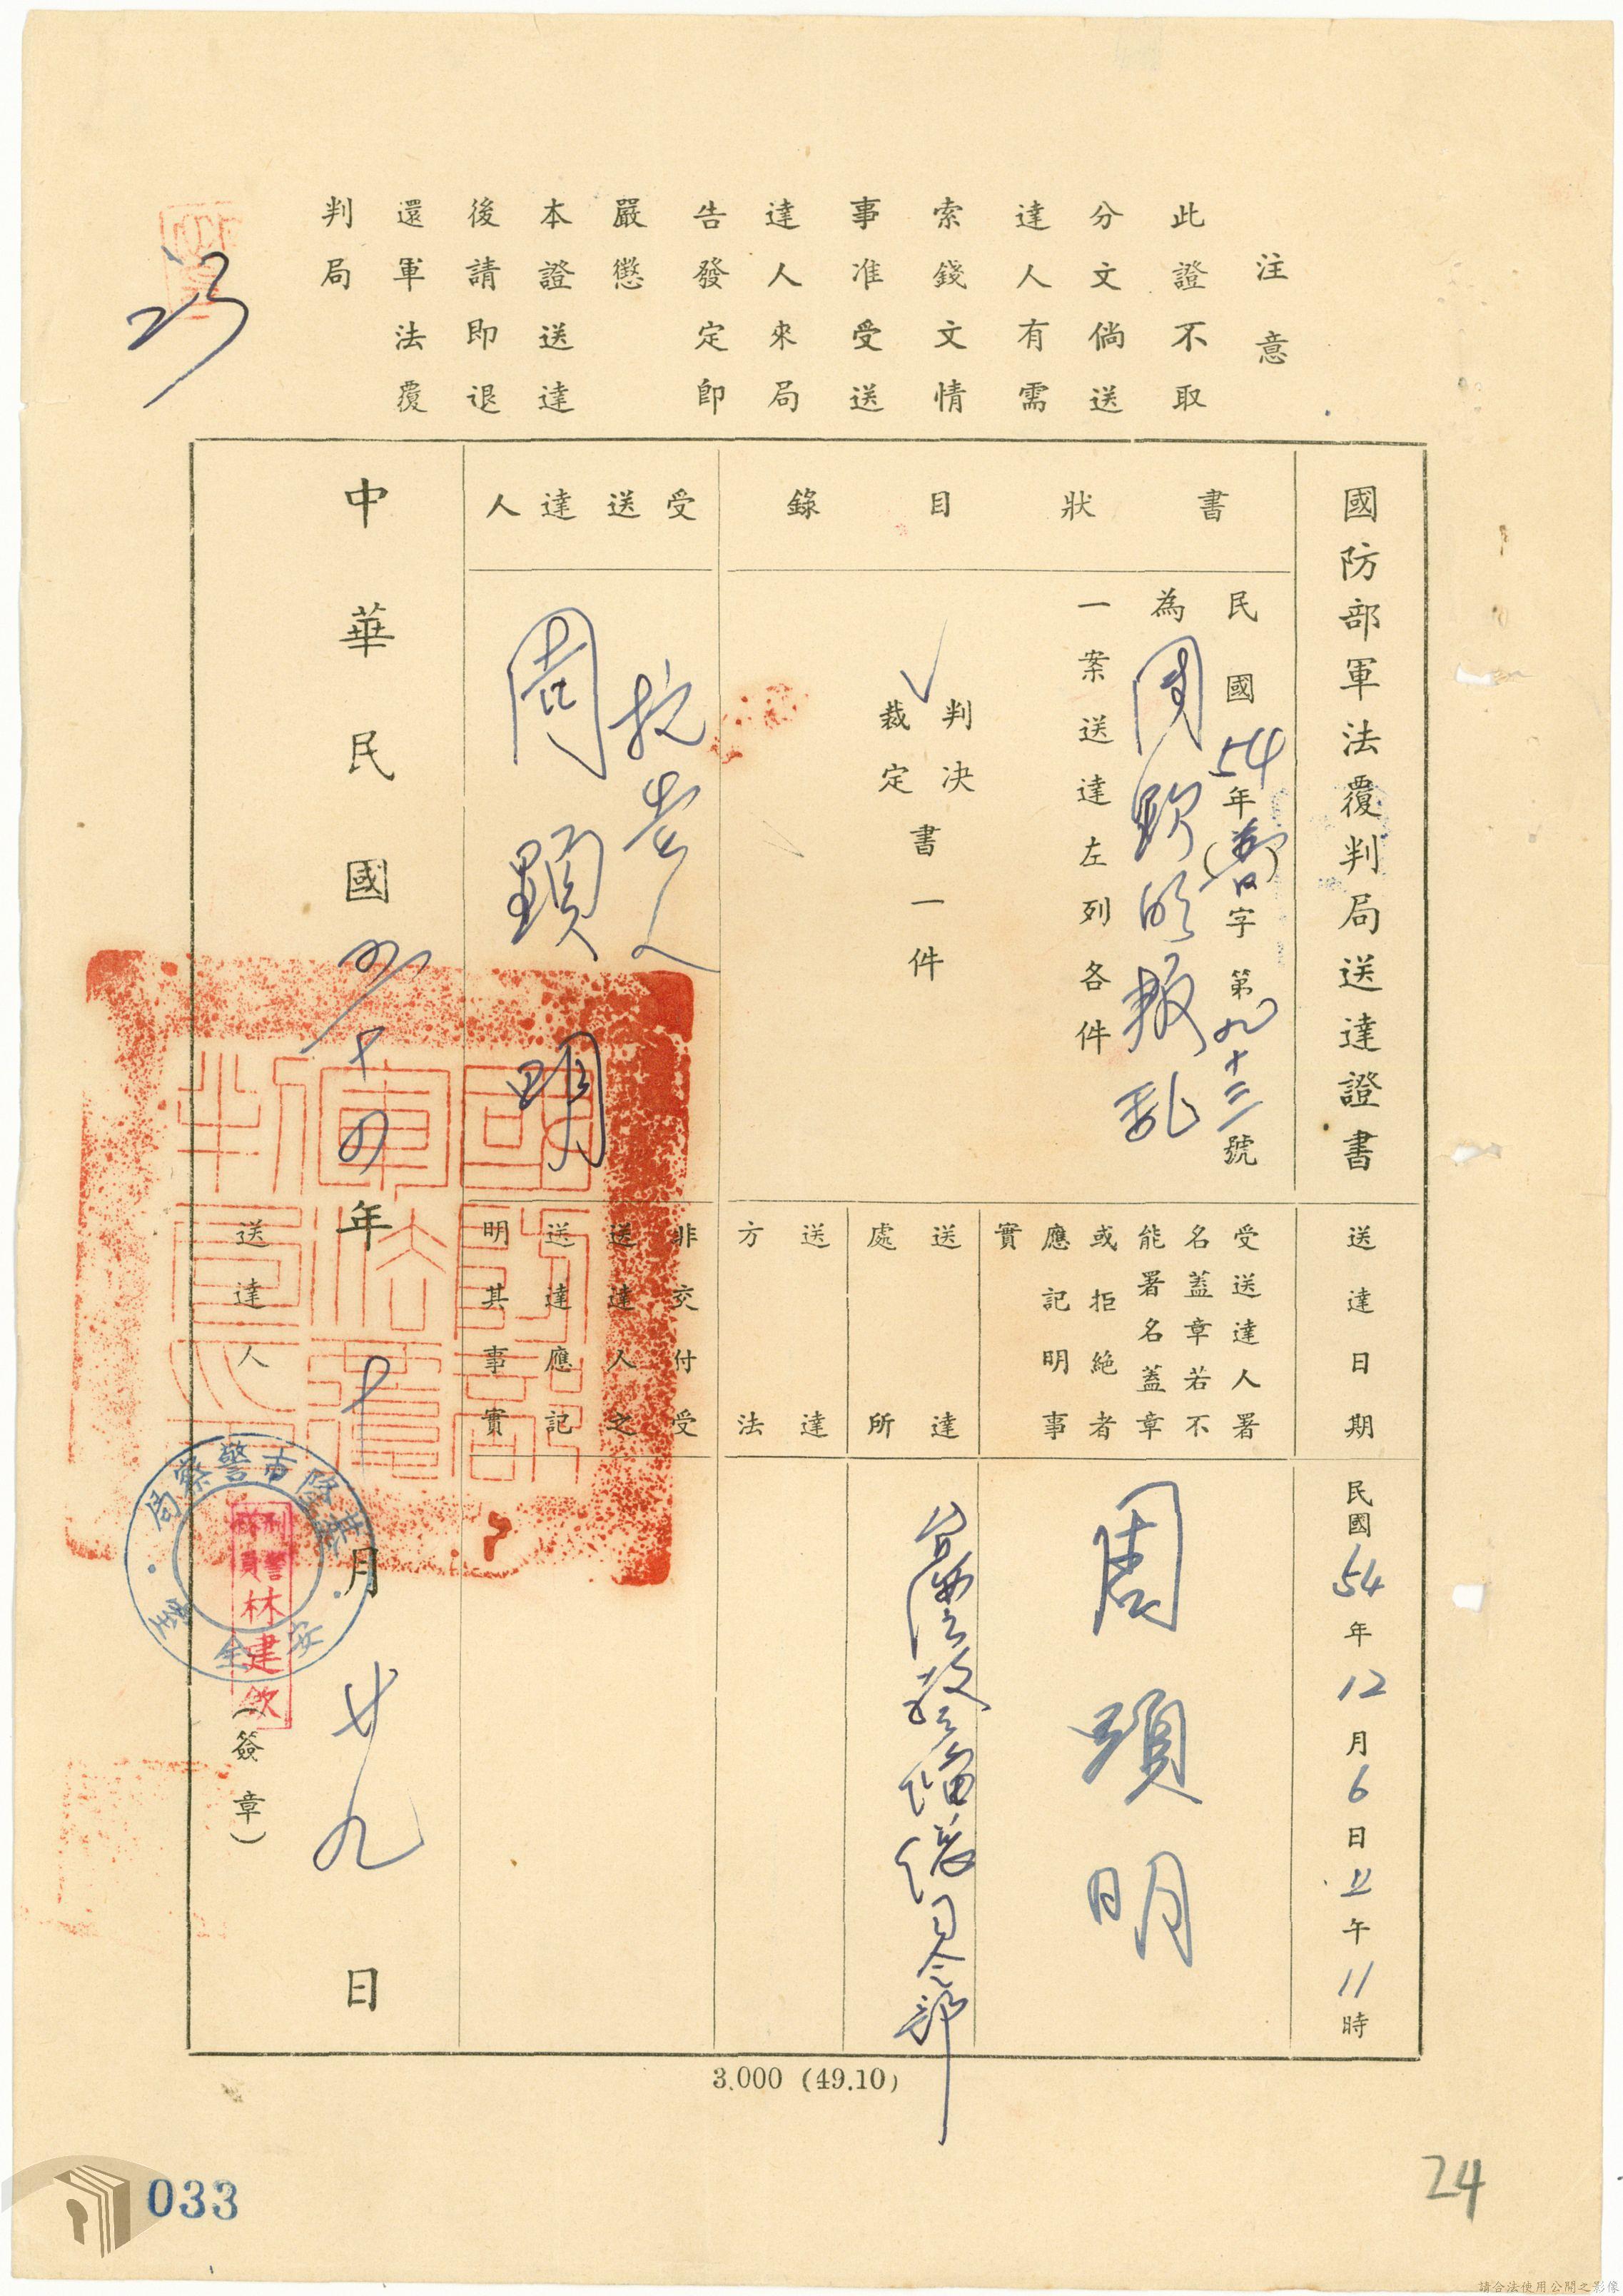 注意
此證不取
分文倘送
達人有需
索錢文情
事准受送
達人來局
告發定即
嚴懲
本證送達
後請即退
還軍法覆
判局
23
國防部軍法覆判局送達證書
書狀目錄
民國54年(普)字第九十三號
為周欽明叛乱
一案送達左列各件
判決
裁定
書一件
受送達人
抗告人
周顕明
送達日期
民國54年12月6日上午11時
受送達人署
名蓋章若不
能署名蓋章
或拒絕者
應記明事
實
周顕明
送達
處所
台灣警備總司令部
送達
方法
非交付受
送達人之
送達應記
明其事實
中華民國四十四年十月廿九日
送達人
(簽章)
基隆市警察局
安全室
刑警隊員
林建欽
3.000 (49.10)
033
24
請合法使用公開之影像